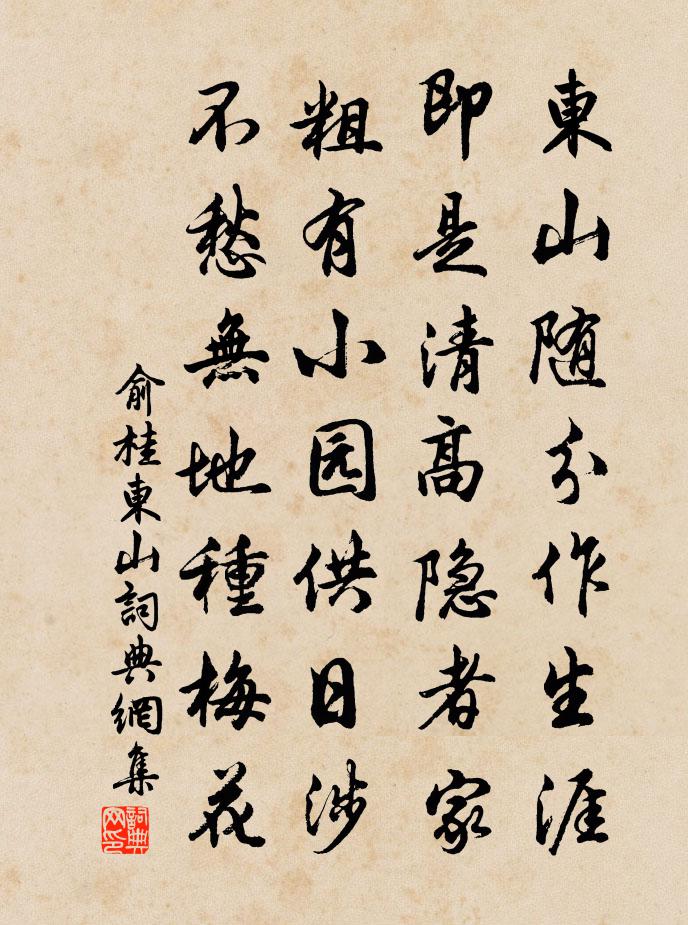 東山随分作生涯
即是清高隐者家
粗有小园供日涉
不愁無地種梅花
俞桂東山詞典網集
詞典网印